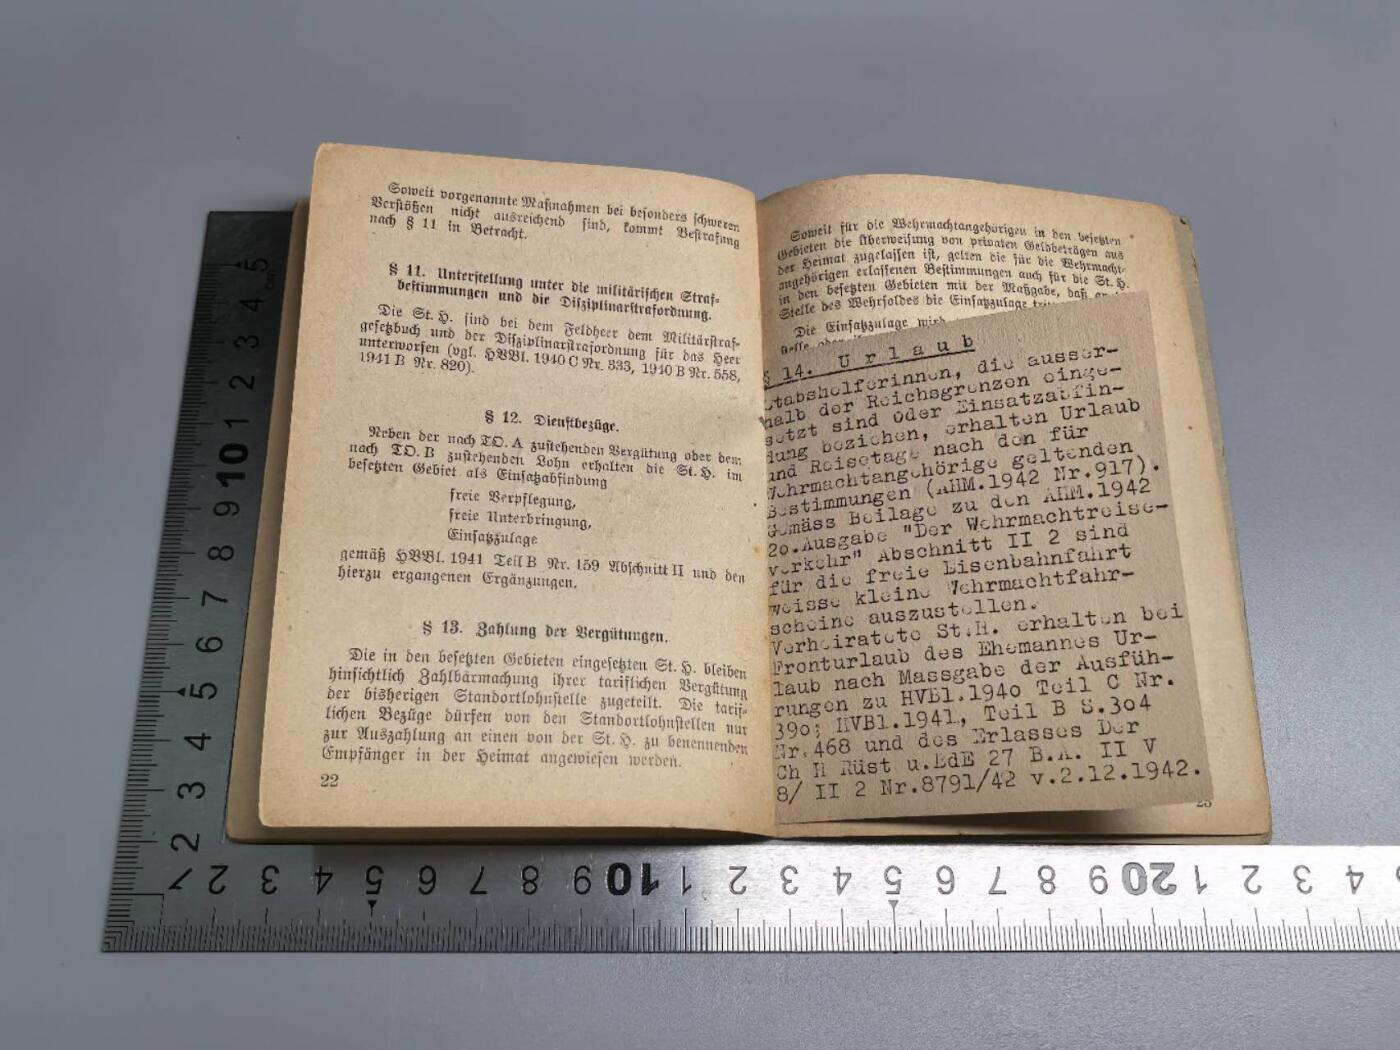 Soweit vorgenannte Maßnahmen bei besonders schweren
Verstößen nicht ausreichend sind, kommt Bestrafung
nach § 11 in Betracht.
§ 11. Unterstellung unter die militärischen Straf-
bestimmungen und die Disziplinarstrafordnung.
Die St. H. sind bei dem Feldheer dem Militärstraf-
gesetzbuch und der Disziplinarstrafordnung für das Heer
unterworfen (vgl. HVBl. 1940 C Nr. 333, 1940 B Nr. 558,
1941 B Nr. 820).
§ 12. Dienstbezüge.
Neben der nach TO. A zustehenden Vergütung oder dem
nach TO. B zustehenden Lohn erhalten die St. H. im
besetzten Gebiet als Einsatzabfindung
freie Verpflegung,
freie Unterbringung,
Einsatzzulage
gemäß HVBl. 1941 Teil B Nr. 159 Abschnitt II und den
hierzu ergangenen Ergänzungen.
§ 13. Zahlung der Vergütungen.
Die in den besetzten Gebieten eingesetzten St. H. bleiben
hinsichtlich Zahlbarmachung ihrer tariflichen Vergütung
der bisherigen Standortlohnstelle zugeteilt. Die tarif-
lichen Bezüge dürfen von den Standortlohnstellen nur
zur Auszahlung an einen von der St. H. zu benennenden
Empfänger in der Heimat angewiesen werden.
22
Soweit für die Wehrmachtangehörigen in den besetzten
Gebieten die Überweisung von privaten Geldbeträgen aus
der Heimat zugelassen ist, gelten die für die Wehrmacht-
angehörigen erlassenen Bestimmungen auch für die St. H.
in den besetzten Gebieten mit der Maßgabe, daß an
Stelle des Wehrsoldes die Einsatzzulage tritt
Die Einsatzzulage wird
§ 14. Urlaub
Stabshelferinnen, die ausser-
halb der Reichsgrenzen einge-
setzt sind oder Einsatzabfin-
dung beziehen, erhalten Urlaub
und Reisetage nach den für
Wehrmachtangehörige geltenden
Bestimmungen (AHM.1942 Nr.917).
Gemäss Beilage zu den AHM.1942
2o.Ausgabe "Der Wehrmachtreise-
verkehr" Abschnitt II 2 sind
für die freie Eisenbahnfahrt
weisse kleine Wehrmachtfahr-
scheine auszustellen.
Verheiratete St.H. erhalten bei
Fronturlaub des Ehemannes Ur-
laub nach Massgabe der Ausfüh-
rungen zu HVBl.194o Teil C Nr.
39o; HVBl.1941, Teil B S.3o4
Nr.468 und des Erlasses Der
Ch H Rüst u.BdE 27 B.A. II V
8/ II 2 Nr.8791/42 v.2.12.1942.
2 3 4 5 6 7 8 9 10 1 2 3 4 5 cm
1 2 3 4 5 6 7 8 9 10 1 2 3 4 5 6 7 8 9 20 1 2 3 4